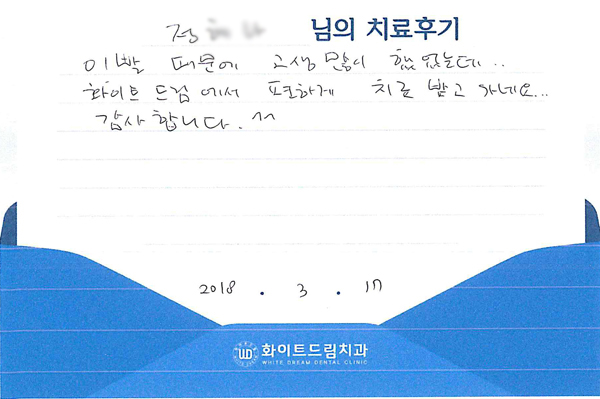 정 님의 치료후기
이빨 때문에 고생 많이 했었는데..
화이트 드림에서 편하게 치료 받고 가네요...
감사합니다. ^^
2018 . 3 . 17
WD 화이트드림치과
WHITE DREAM DENTAL CLINIC